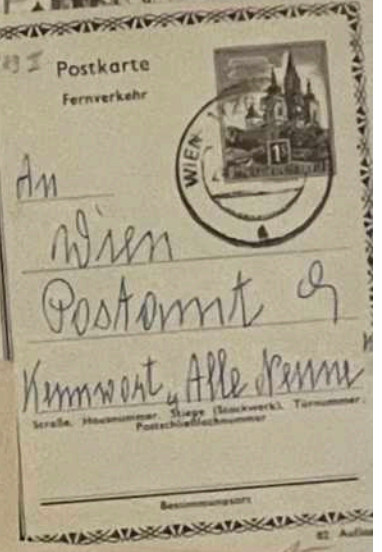 Postkarte
Fernverkehr
WIEN
1S
An
Wien
Postamt 9
Kennwort "Alle Neune
Straße, Hausnummer, Stiege (Stockwerk), Türnummer,
Postschließfachnummer
Bestimmungsort
82. Auflage